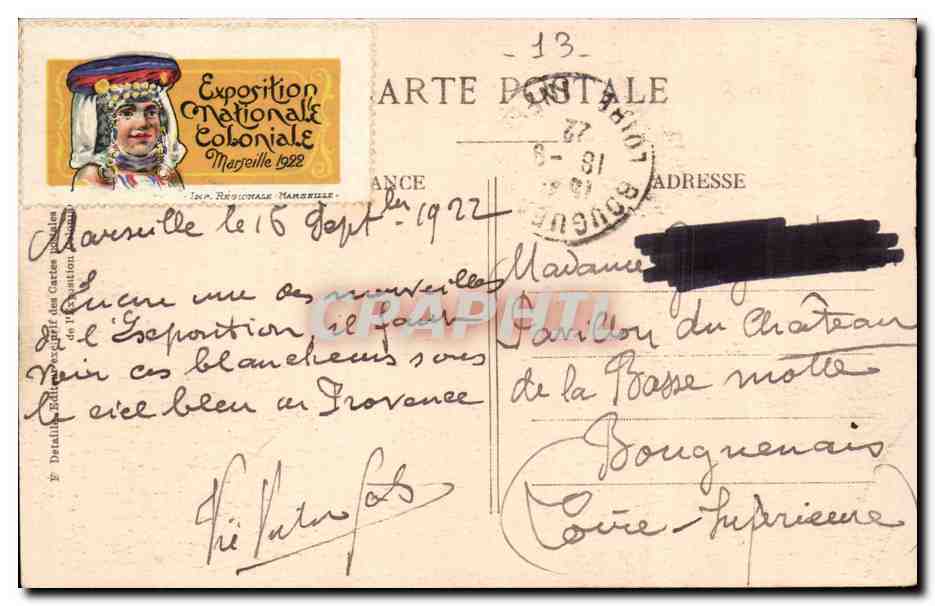 Exposition
Nationale
Coloniale
Marseille 1922
IMP. RÉGIONALE - MARSEILLE -
- 13 -
CARTE POSTALE
ANCE
ADRESSE
BOUGUE
LOIRE
18 - 9
22
Marseille le 16 Septbre 1922
Encore une des merveilles
de l'Exposition il faut
voir ces blancheurs sous
le ciel bleu de Provence
Madame
Pavillon du Château
de la Basse motte
Bouguenais
Loire-Inférieure
F Detaille, Editeur exclusif des Cartes postales
de l'Exposition Coloniale
CPAPHIL